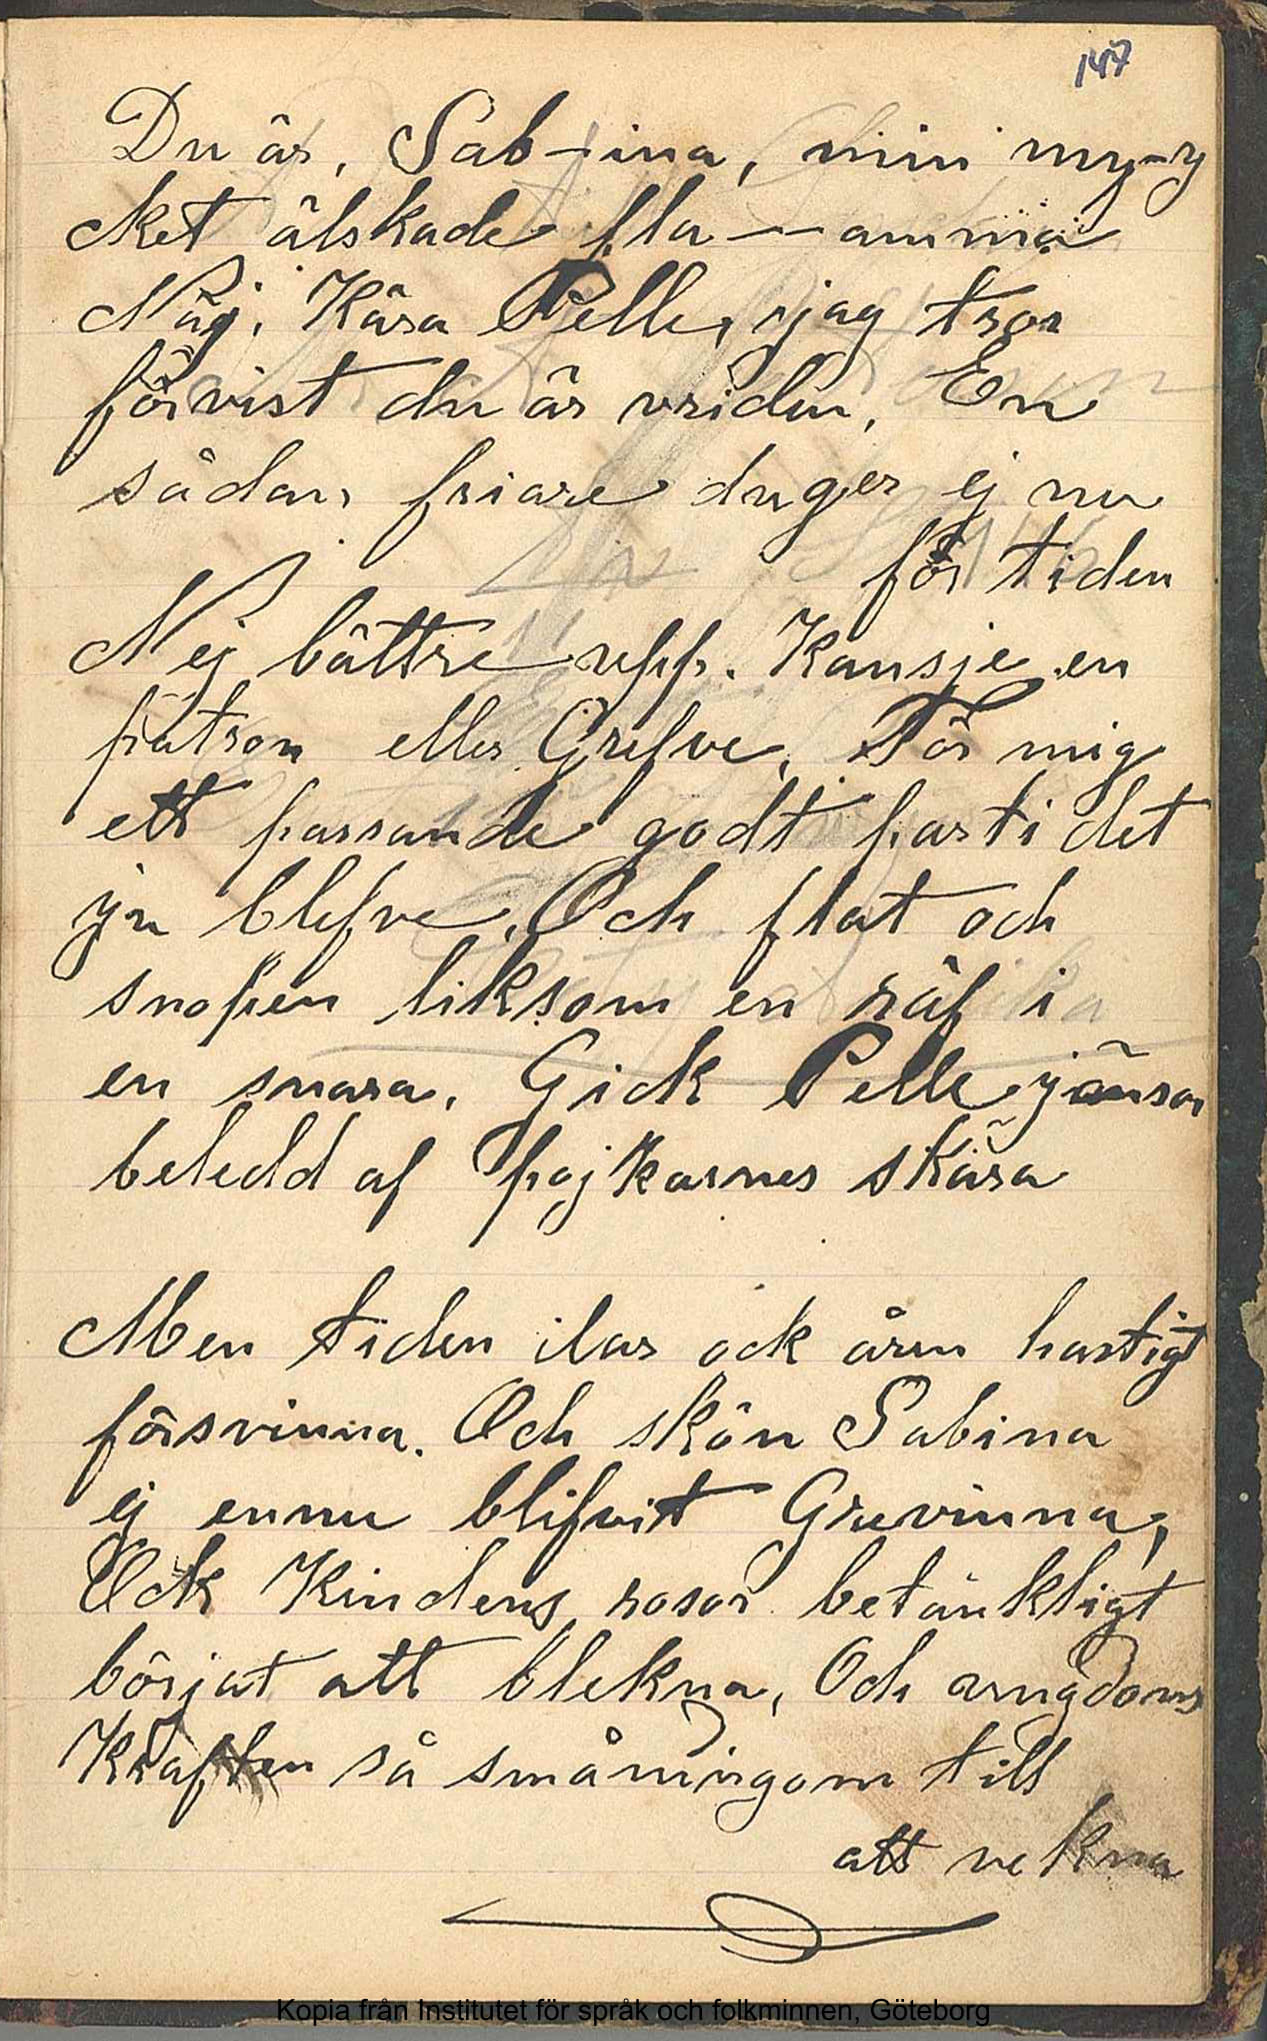 147
Du är, Sab-ina, min my-y
cket älskade fla--amma
Näj, Kära Pelle, jag tror
förvist du är vriden, En
sådan friare duger ej nu
för tiden
Nej bättre upp. Kansje en
patron eller Grefve, För mig
ett passande godt parti det
ju blefve, Och flat och
snopen liksom en räf i
en snara, Gick Pelle jönson
beledd af pojkarnes skara
Men tiden ilar ock åren hastigt
försvinna. Och skön Sabina
ej ennu blifvit Gruvinna,
Ock Kindens rosor betänkligt
börjat att blekna, Och ungdoms
Kraften så småningom till
att vekna
Kopia från Institutet för språk och folkminnen, Göteborg